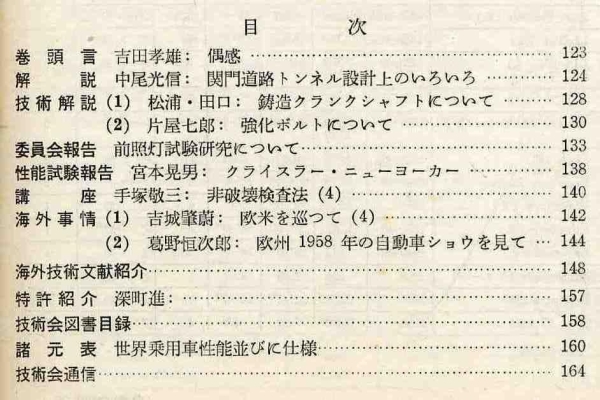 目 次
巻頭言 吉田孝雄: 偶感 …… 123
解説 中尾光信: 関門道路トンネル設計上のいろいろ …… 124
技術解説 (1) 松浦・田口: 鋳造クランクシャフトについて …… 128
(2) 片屋七郎: 強化ボルトについて …… 130
委員会報告 前照灯試験研究について …… 133
性能試験報告 宮本晃男: クライスラー・ニューヨーカー …… 138
講座 手塚敬三: 非破壊検査法 (4) …… 140
海外事情 (1) 吉城肇蔚: 欧米を巡つて (4) …… 142
(2) 葛野恒次郎: 欧州 1958 年の自動車ショウを見て … 144
海外技術文献紹介 …… 148
特許紹介 深町進: …… 157
技術会図書目録 …… 158
諸元表 世界乗用車性能並びに仕様 …… 160
技術会通信 …… 164